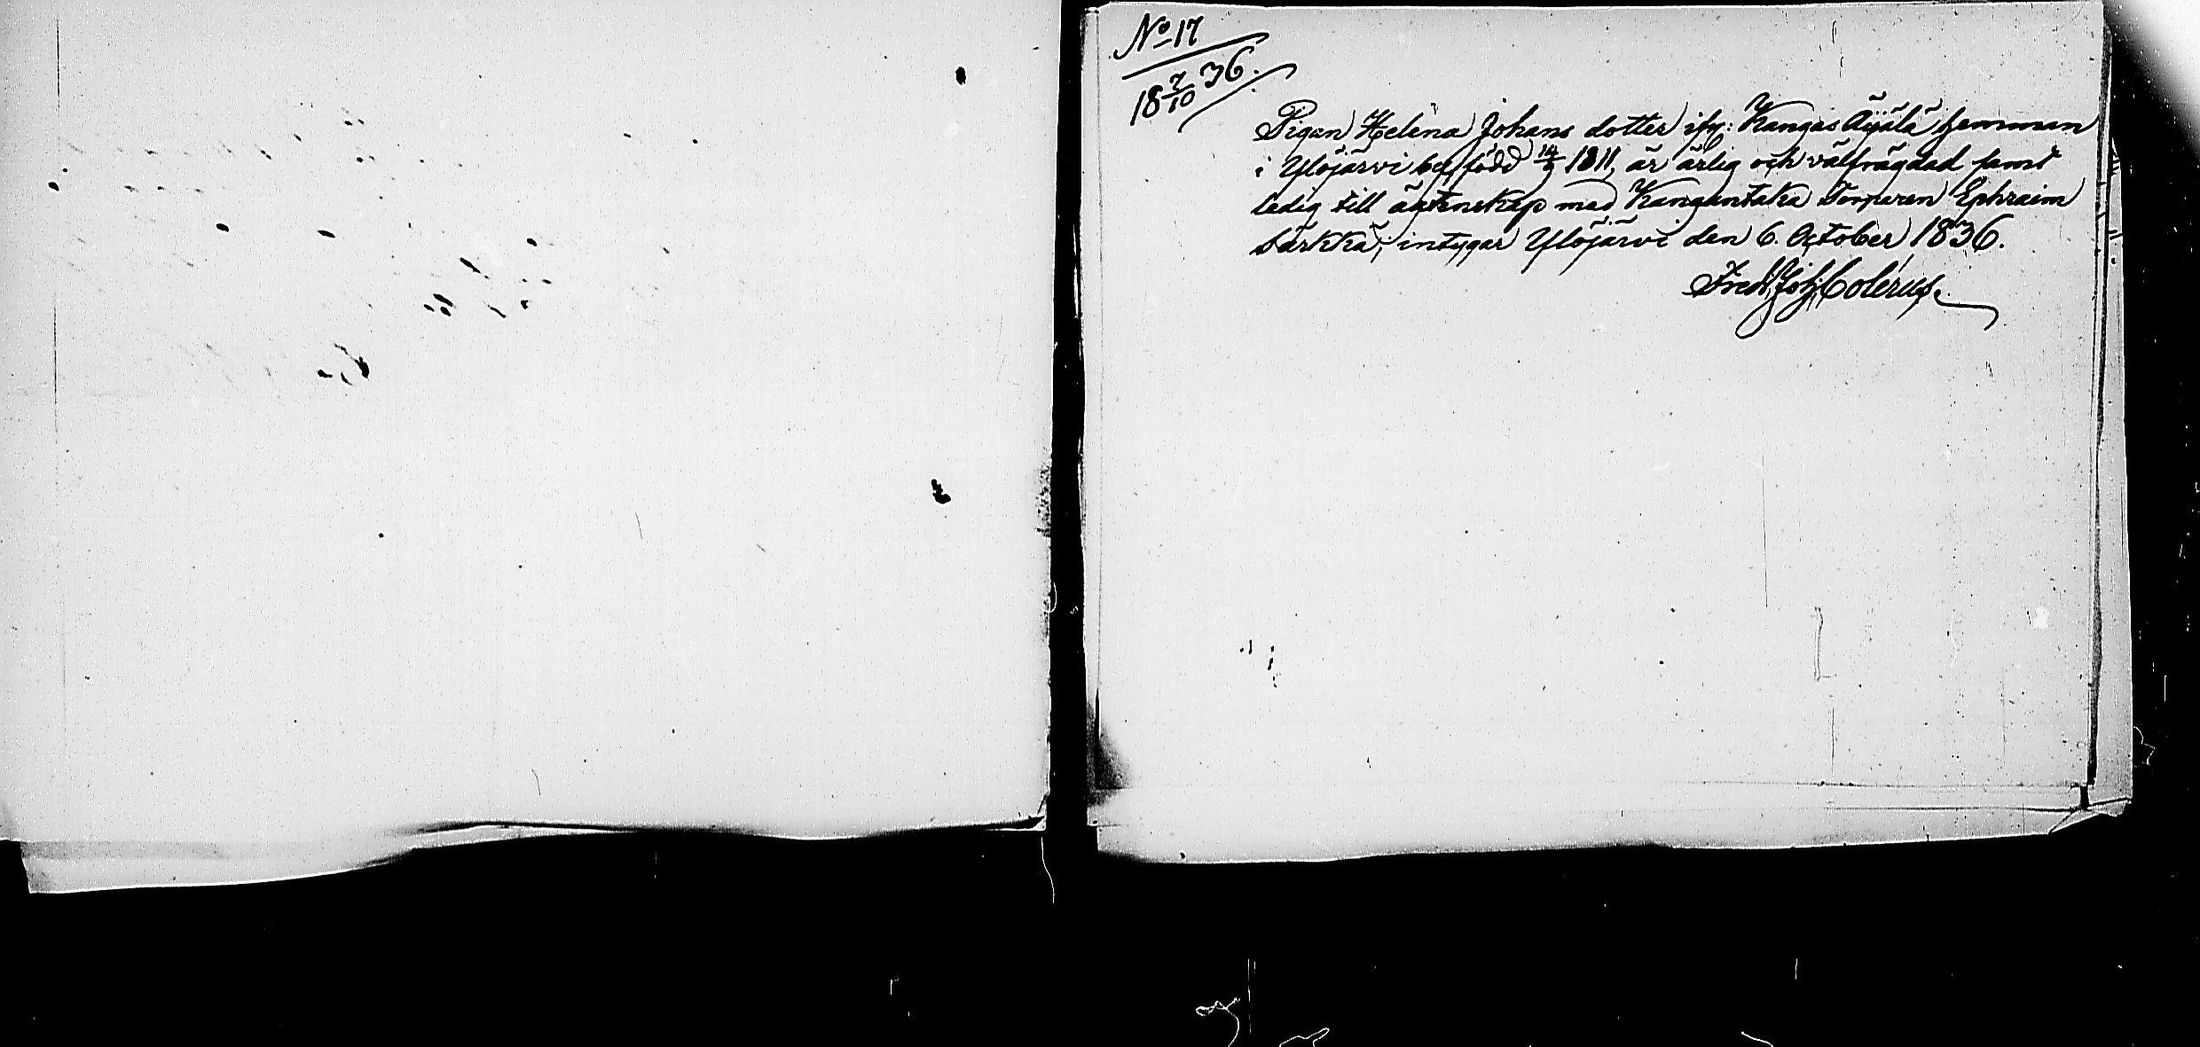 No 17
18 7/10 36.
Pigan Helena Johans dotter ifr: Kangas Äijälä hemman
i Ylöjärvi by, född 1811, är ärlig och välfrägdad samt
ledig till ägtenskap med Kangantaka Torparen Ephraim
Särkkä; intygar Ylöjärvi den 6. October 1836.
Fred. Joh. Colérus.